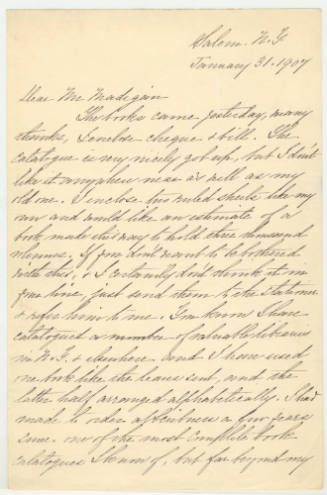 Salem. N. Y.
January 31. 1907
Dear Mr Madigan
The books came yesterday, many
thanks, I enclose cheque & bill. The
catalogue is very nicely got up, but I don't
like it anywhere near as well as my
old one. I enclose two ruled sheets like my
own and would like an estimate of a
book made this way to hold three thousand
volumes. If you don't want to be bothered
with this, & I certainly don't think it in
your line, just send them to the stationer
& refer him to me. You know I have
catalogued a number of valuable libraries
in N. Y. & elsewhere and I have used
one book like the leaves sent, and the
latter half arranged alphabetically. I had
made to order a few years
since one of the most complete book
catalogues I know of, but far beyond my